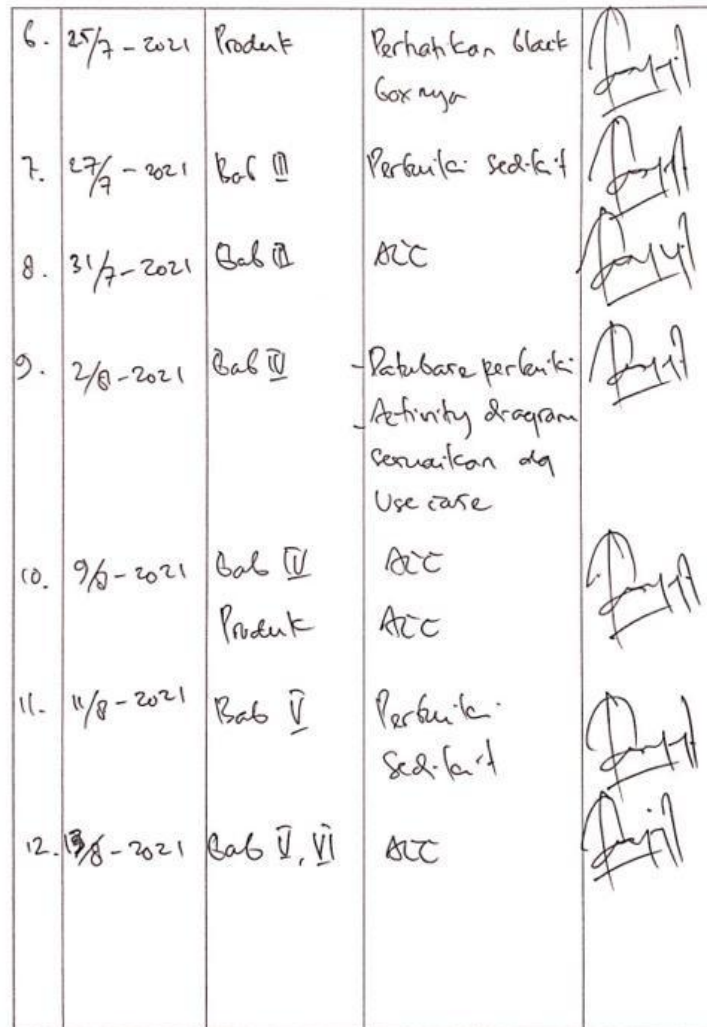 6. 25/7 - 2021 Produk Perhatikan black
boxnya
7. 27/7 - 2021 Bab III Perbaiki sedikit
8. 31/7 - 2021 Bab III ACC
9. 2/8 - 2021 Bab IV - Database perbaiki
- Activity diagram
sesuaikan dg
Use case
10. 9/8 - 2021 Bab IV ACC
Produk ACC
11. 11/8 - 2021 Bab V Perbaiki
sedikit
12. 13/8 - 2021 Bab V, VI ACC